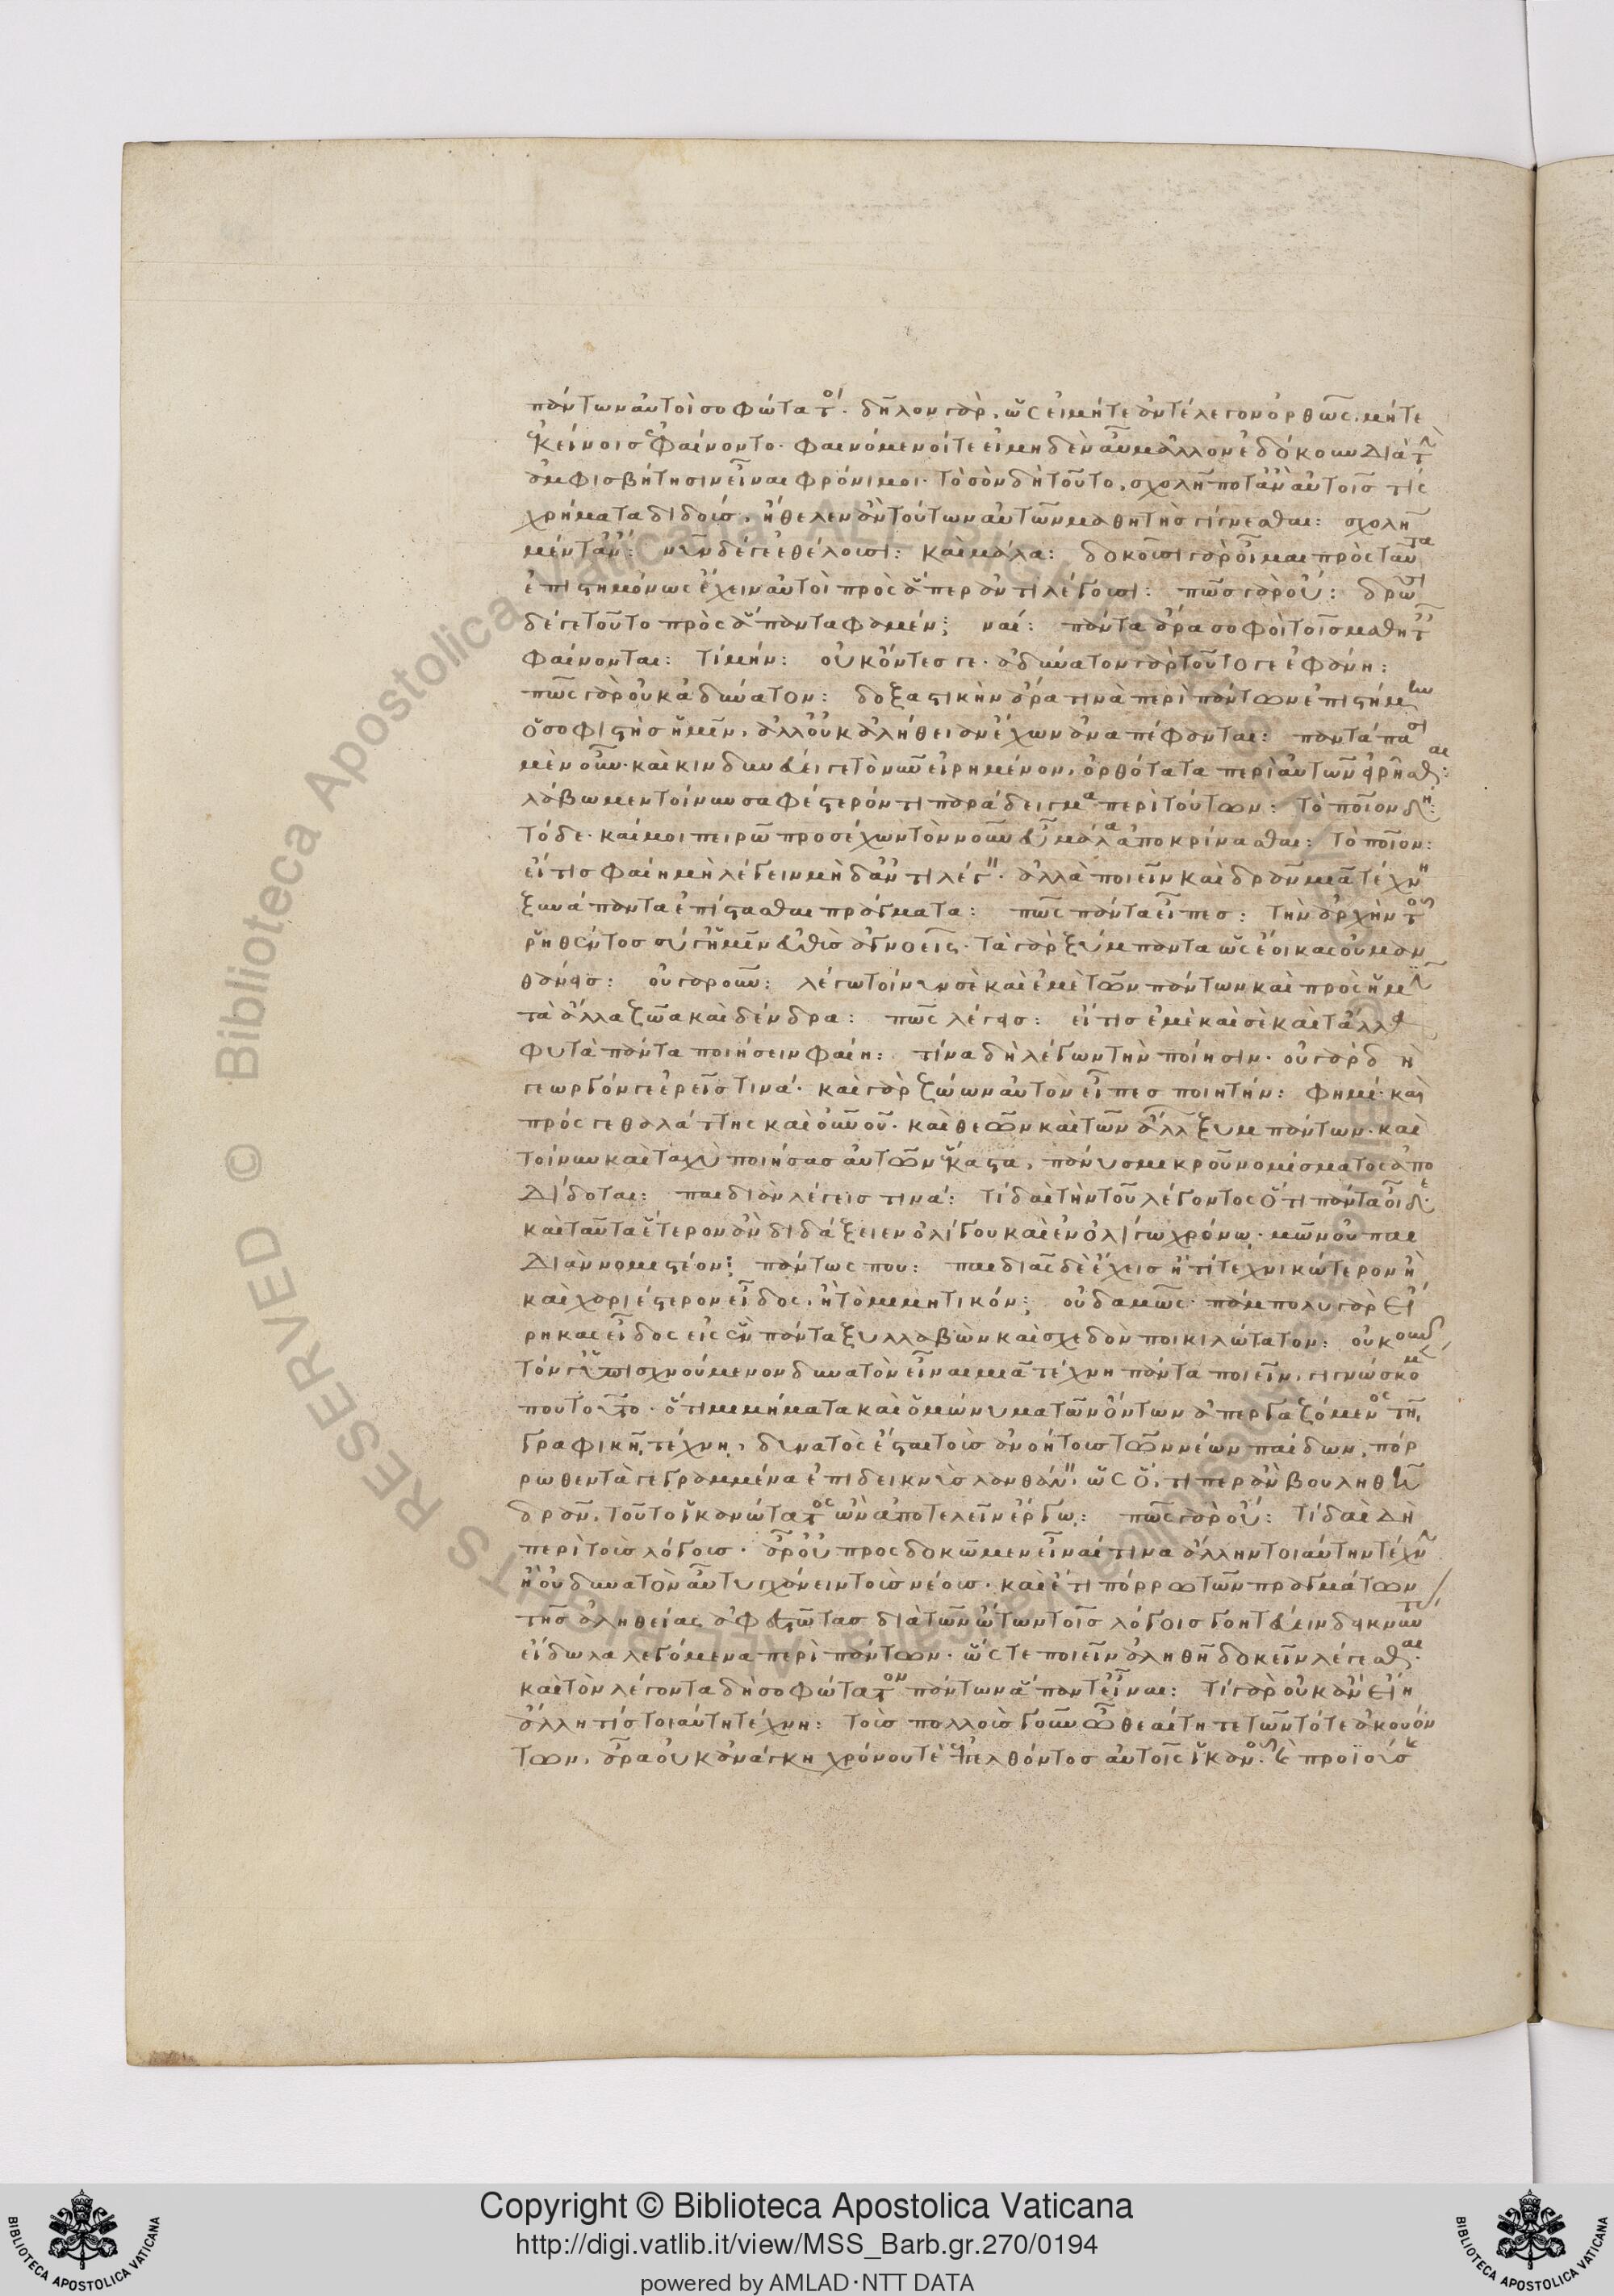 πάντων αὐτοὶ σοφώτατοι. δῆλον γὰρ, ὡς εἰ μήτε ἀντέλεγον ὀρθῶς, μήτε
ἐκείνοις ἐφαίνοντο. φαινόμενοί τε εἰ μηδὲν αὖ μᾶλλον ἐδόκουν διὰ τὴν
ἀμφισβήτησιν εἶναι φρόνιμοι. τὸ σὸν δὴ τοῦτο, σχολῇ ποτ' ἂν αὐτοῖς τίς
χρήματα διδοὺς, ἤθελεν ἂν τούτων αὐτῶν μαθητὴς γίγνεσθαι: σχολῇ
μέντ' ἄν: νῦν δέ γε ἐθέλουσι: καὶ μάλα: δοκοῦσι γὰρ οἶμαι πρὸς ταῦτα
ἐπιστημόνως ἔχειν αὐτοὶ πρὸς ἅπερ ἀντιλέγουσι: πῶς γὰρ οὔ: δρῶσι
δέ γε τοῦτο πρὸς ἅπαντα φαμέν; ναί: πάντα ἄρα σοφοὶ τοῖς μαθηταῖς
φαίνονται: τί μήν: οὐκ ὄντες γε. ἀδύνατον γὰρ τοῦτό γε ἐφάνη:
πῶς γὰρ οὐκ ἀδύνατον: δοξαστικὴν ἄρα τινὰ περὶ πάντων ἐπιστήμην
ὁ σοφιστὴς ἡμῖν, ἀλλ' οὐκ ἀλήθειαν ἔχων ἀναπέφανται: παντάπασι
μὲν οὖν. καὶ κινδυνεύει γε τὸ νῦν εἰρημένον, ὀρθότατα περὶ αὐτῶν εἰρῆσθαι:
λάβωμεν τοίνυν σαφέστερόν τι παράδειγμα περὶ τούτων: τὸ ποῖον δή:
τόδε. καί μοι πειρῶ προσέχων τὸν νοῦν εὖ μάλα ἀποκρίνασθαι: τὸ ποῖον:
εἴ τις φαίη μὴ λέγειν μὴ δ' ἀντιλέγειν. ἀλλὰ ποιεῖν καὶ δρᾶν μιᾷ τέχνῃ
ξυνάπαντα ἐπίστασθαι πράγματα: πῶς πάντα εἶπες: τὴν ἀρχὴν τοῦ
ῥηθέντος σύ γ' ἡμῖν εὐθὺς ἀγνοεῖς. τὰ γὰρ ξύμπαντα ὡς ἔοικας οὐ μαν
θάνεις: οὐ γὰρ οὖν: λέγω τοίνυν σὲ καὶ ἐμὲ τῶν πάντων καὶ πρὸς ἡμῖν
τὰ ἄλλα ζῶα καὶ δένδρα: πῶς λέγεις: εἴ τις ἐμὲ καὶ σὲ καὶ τἄλλα
φυτὰ πάντα ποιήσειν φαίη: τίνα δὴ λέγων τὴν ποίησιν. οὐ γὰρ δὴ
γεωργόν γε ἐρεῖς τινά. καὶ γὰρ ζώων αὐτὸν εἶπες ποιητήν: φημί. καὶ
πρός γε θαλάττης καὶ οὐρανοῦ. καὶ θεῶν καὶ τῶν ἄλλων ξυμπάντων. καὶ
τοίνυν καὶ ταχὺ ποιήσας αὐτῶν ἕκαστα, πάνυ σμικροῦ νομίσματος ἀπο
δίδοται: παιδιὰν λέγεις τινά: τί δαὶ τὴν τοῦ λέγοντος ὅτι πάντα οἶδε.
καὶ ταῦτα ἕτερον ἂν διδάξειεν ὀλίγου καὶ ἐν ὀλίγω χρόνω. μῶν οὐ παι
διὰν νομιστέον; πάντως που: παιδιᾶς δὲ ἔχεις ἤ τί τεχνικώτερον ἢ
καὶ χαριέστερον εἶδος, ἢ τὸ μιμητικόν; οὐδαμῶς. πάμπολυ γὰρ εἴ
ρηκας εἶδος εἰς ἓν πάντα ξυλλαβὼν καὶ σχεδὸν ποικιλώτατον: οὐκοῦν
τόν γ' ὑπισχνούμενον δυνατὸν εἶναι μιᾷ τέχνη πάντα ποιεῖν, γιγνώσκομεν
που τοῦτο. ὅτι μιμήματα καὶ ὁμώνυμα τῶν ὄντων ἀπεργαζόμενος τῇ
γραφικῇ τέχνῃ, δυνατὸς ἔσται τοὺς ἀνοήτους τῶν νέων παίδων, πόρ
ρωθεν τὰ γεγραμμένα ἐπιδεικνὺς λανθάνειν, ὡς ὅ,τι περ ἂν βουληθῇ
δρᾶν, τοῦτο ἱκανώτατος ὢν ἀποτελεῖν ἔργω: πῶς γὰρ οὔ: τί δαὶ δὴ
περὶ τοὺς λόγους. ἆρ' οὐ προσδοκῶμεν εἶναί τινα ἄλλην τοιαύτην τέχνην
ἢ οὐ δυνατὸν αὖ τυγχάνειν τοὺς νέους. καὶ ἔτι πόρρω τῶν πραγμάτων
τῆς ἀληθείας ἀφεστῶτας διὰ τῶν ὤτων τοῖς λόγοις γοητεύειν δεικνύντας
εἴδωλα λεγόμενα περὶ πάντων. ὥστε ποιεῖν ἀληθῆ δοκεῖν λέγεσθαι.
καὶ τὸν λέγοντα δὴ σοφώτατον πάντων ἅπαντ' εἶναι: τί γὰρ οὐκ ἂν εἴη
ἄλλη τίς τοιαύτη τέχνη: τοὺς πολλοὺς γοῦν ὦ θεαίτητε τῶν τότε ἀκουόν
των, ἆρα οὐκ ἀνάγκη χρόνου τὲ ἐπελθόντος αὐτοῖς ἱκανοῦ. καὶ προϊούσης
Copyright © Biblioteca Apostolica Vaticana
http://digi.vatlib.it/view/MSS_Barb.gr.270/0194
powered by AMLAD·NTT DATA
BIBLIOTECA APOSTOLICA VATICANA
BIBLIOTECA APOSTOLICA VATICANA
© Biblioteca Apostolica Vaticana ALL RIGHTS RESERVED